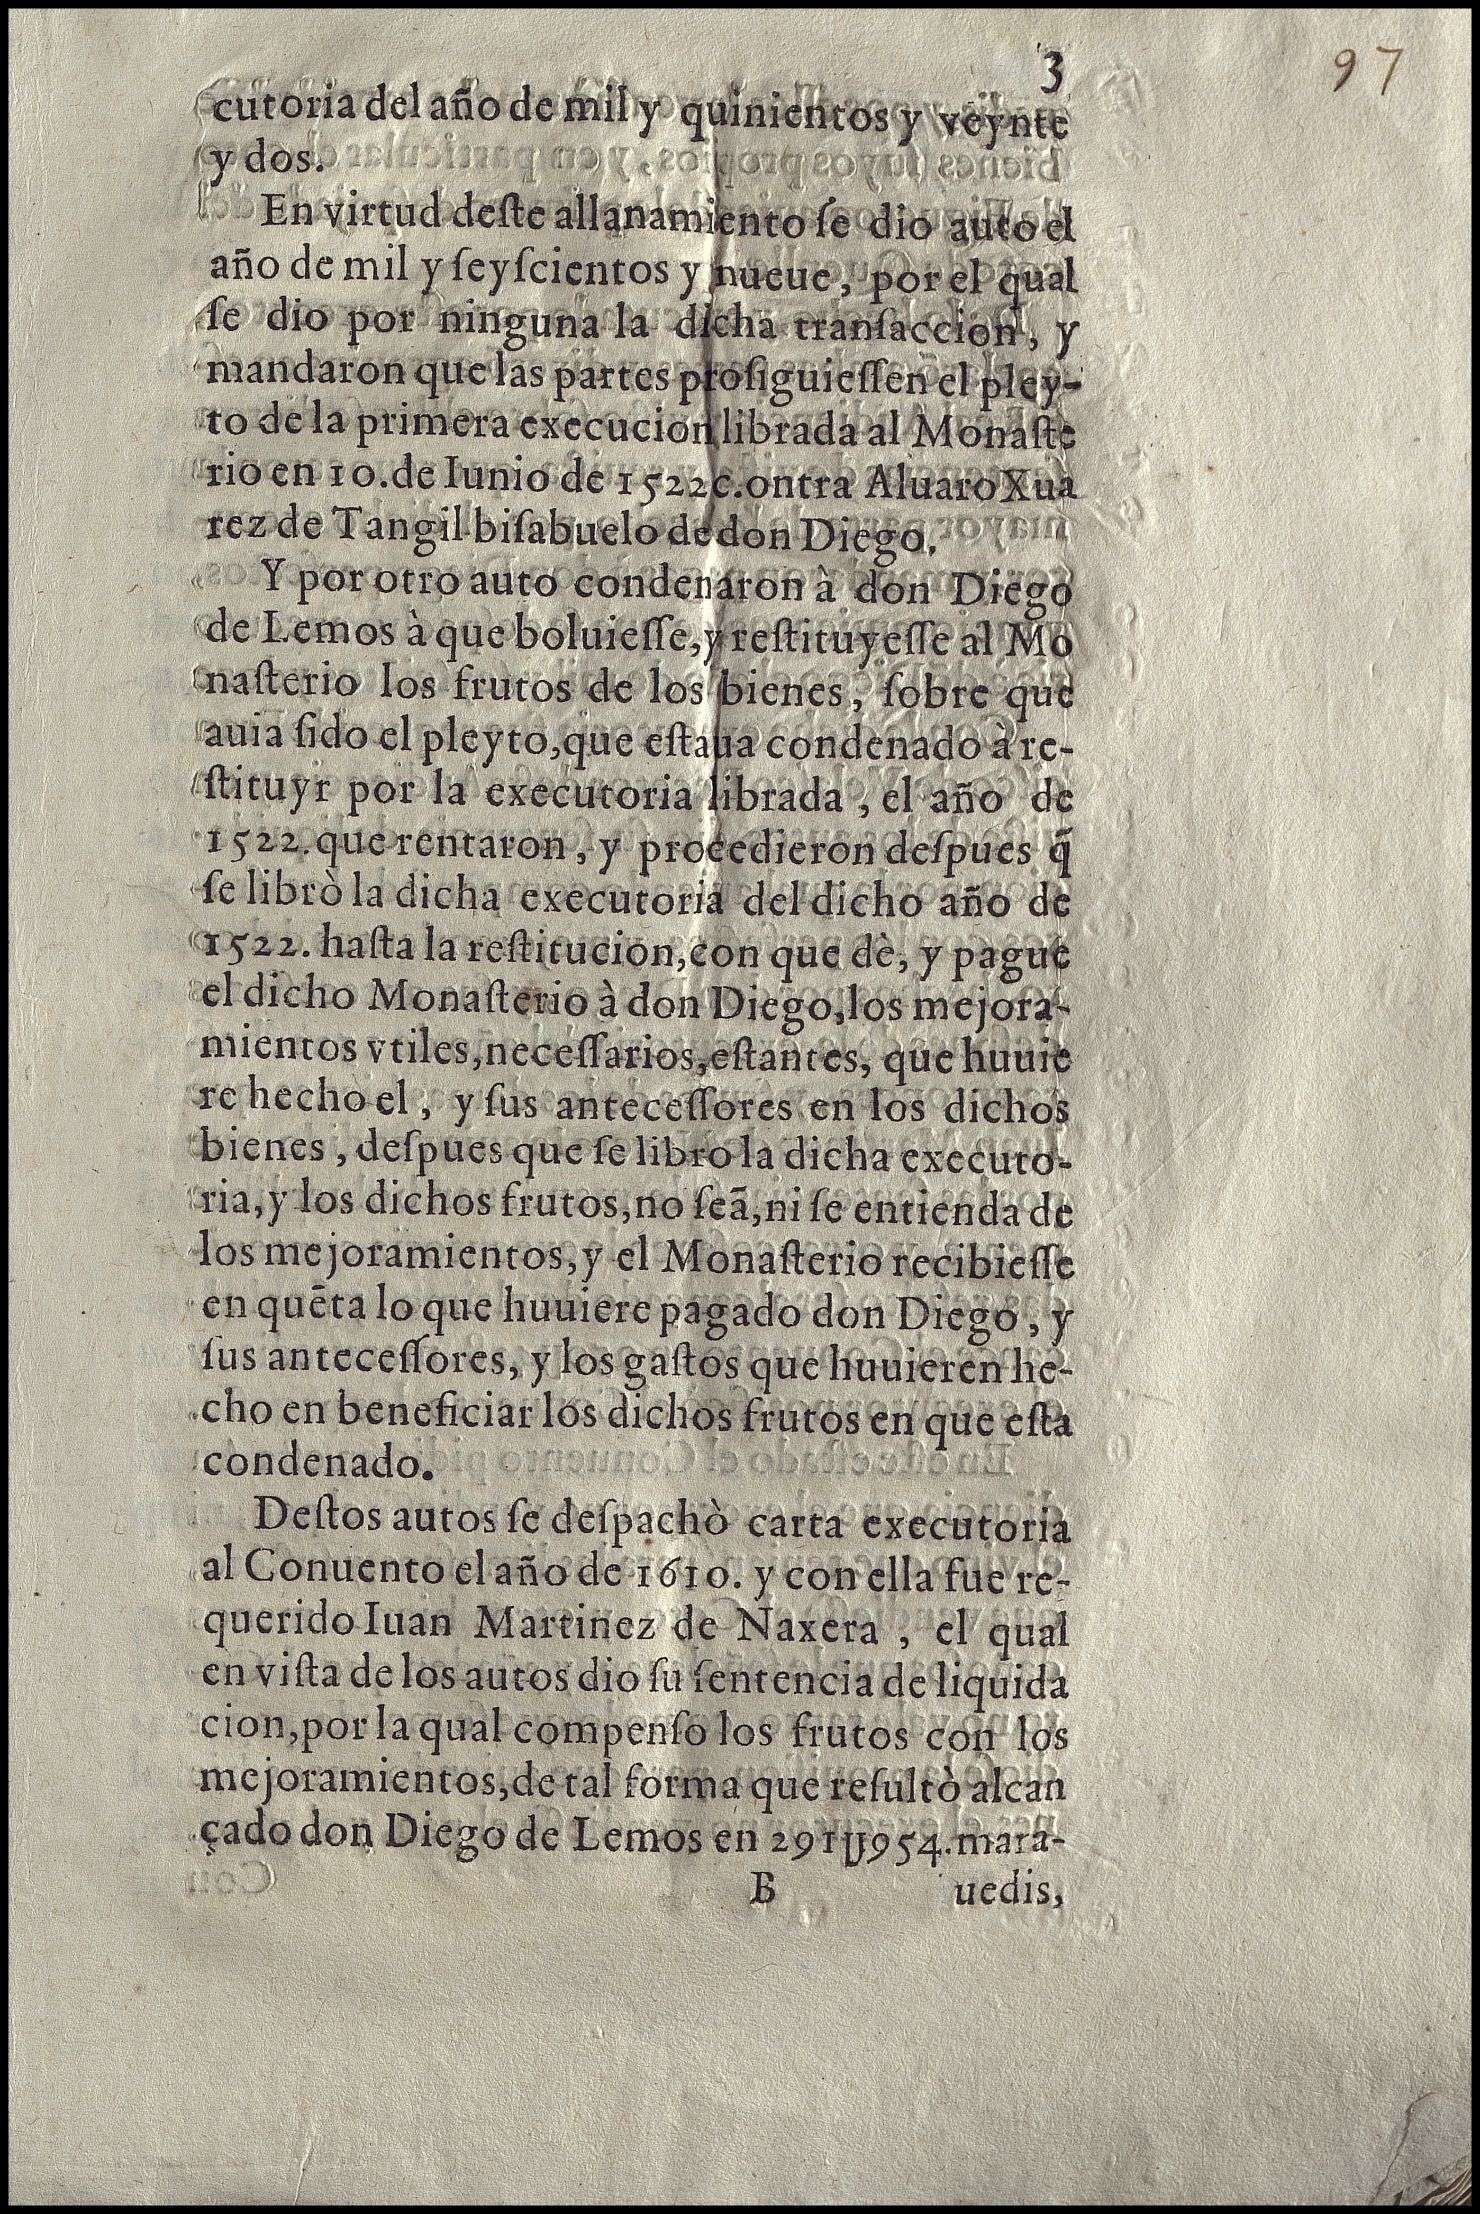 3
97
cutoria del año de mil y quinientos y veynte
y dos.
En virtud deſte allanamiento ſe dio auto el
año de mil y ſeyſcientos y nueue, por el qual
ſe dio por ninguna la dicha tranſaccion, y
mandaron que las partes proſiguieſſen el pley-
to de la primera execucion librada al Monaſte
rio en 10. de Iunio de 1522c.ontra Aluaro Xua
rez de Tangil biſabuelo de don Diego.
Y por otro auto condenaron à don Diego
de Lemos à que boluieſſe, y reſtituyeſſe al Mo
naſterio los frutos de los bienes, ſobre que
auia ſido el pleyto, que eſtaua condenado à re-
ſtituyr por la executoria librada, el año de
1522. que rentaron, y procedieron deſpues q̃
ſe librò la dicha executoria del dicho año de
1522. haſta la reſtitucion, con que dè, y pague
el dicho Monaſterio à don Diego, los mejora-
mientos vtiles, neceſſarios, eſtantes, que huuie
re hecho el, y ſus anteceſſores en los dichos
bienes, deſpues que ſe libro la dicha executo-
ria, y los dichos frutos, no ſeã, ni ſe entienda de
los mejoramientos, y el Monaſterio recibieſſe
en quẽta lo que huuiere pagado don Diego, y
ſus anteceſſores, y los gaſtos que huuieren he-
cho en beneficiar los dichos frutos en que eſta
condenado.
Deſtos autos ſe deſpachò carta executoria
al Conuento el año de 1610. y con ella fue re-
querido Iuan Martinez de Naxera, el qual
en viſta de los autos dio ſu ſentencia de liquida
cion, por la qual compenſo los frutos con los
mejoramientos, de tal forma que reſultò alcan
çado don Diego de Lemos en 291U954. mara-
B
uedis,